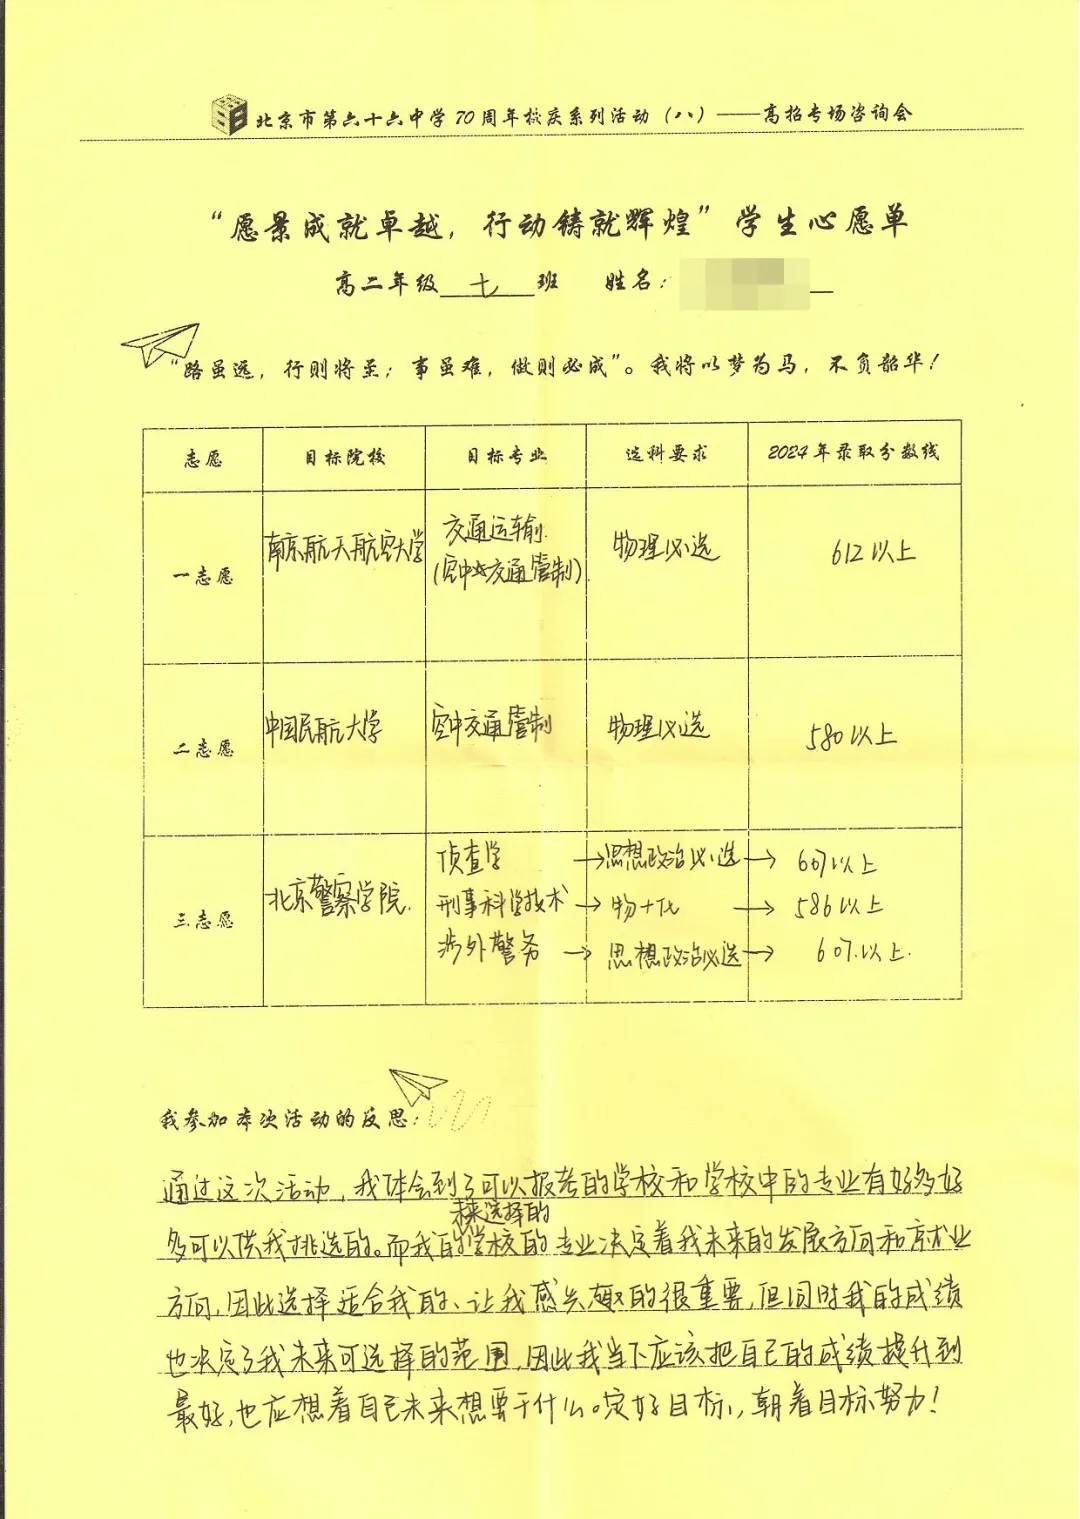 北京市第六十六中学70周年校庆系列活动（八）——高招专场咨询会
“愿景成就卓越，行动铸就辉煌”学生心愿单
高二年级 七 班 姓名：
“路虽远，行则将至；事虽难，做则必成”。我将以梦为马，不负韶华！
志愿 目标院校 目标专业 选科要求 2024年录取分数线
一志愿 南京航天航空大学 交通运输(空中交通管制) 物理必选 612以上
二志愿 中国民航大学 空中交通管制 物理必选 580以上
三志愿 北京警察学院. 侦查学 → 思想政治必选 → 607以上
刑事科学技术 → 物+化 → 586以上
涉外警务 → 思想政治必选 → 607.以上.
我参加本次活动的反思：
通过这次活动，我体会到了可以报考的学校和学校中的专业有好多好
未来选择的
多可以供我挑选的。而我的学校的专业决定着我未来的发展方向和就业
方向，因此选择适合我的、让我感兴趣的很重要，但同时我的成绩
也决定了我未来可选择的范围，因此我当下应该把自己的成绩提升到
最好，也应想着自己未来想要干什么。定好目标，朝着目标努力！